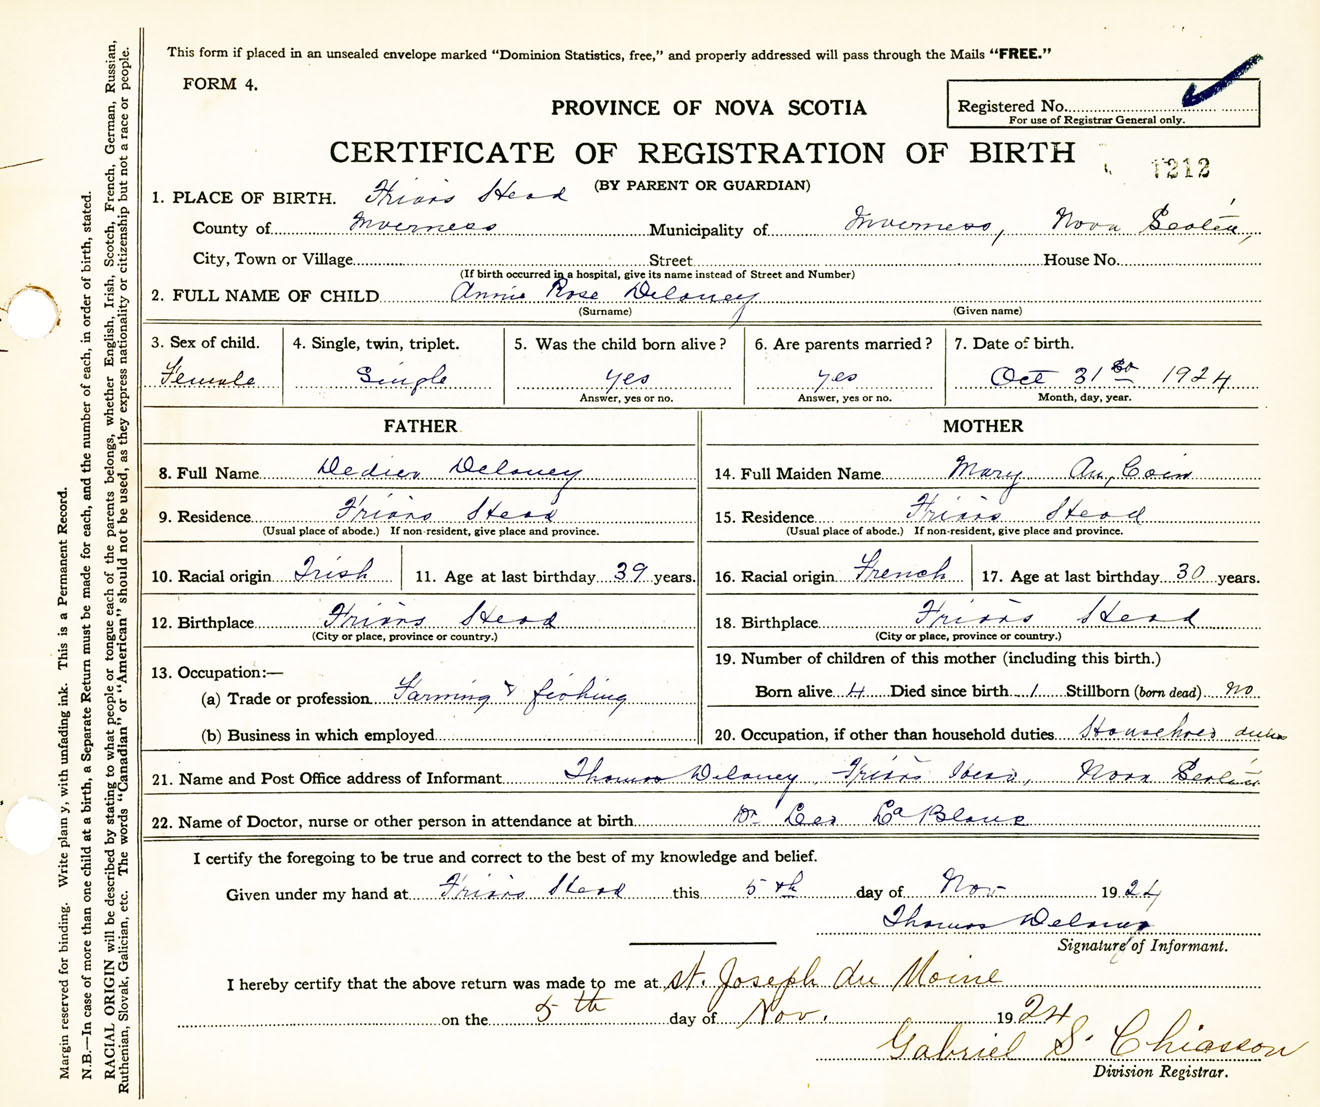 This form if placed in an unsealed envelope marked "Dominion Statistics, free," and properly addressed will pass through the Mails "FREE."
FORM 4.
PROVINCE OF NOVA SCOTIA
Registered No.
For use of Registrar General only.
CERTIFICATE OF REGISTRATION OF BIRTH
1212
(BY PARENT OR GUARDIAN)
1. PLACE OF BIRTH. Friars Head
County of Inverness Municipality of Inverness, Nova Scotia,
City, Town or Village Street House No.
(If birth occurred in a hospital, give its name instead of Street and Number)
2. FULL NAME OF CHILD Annie Rose Delaney
(Surname) (Given name)
3. Sex of child. 4. Single, twin, triplet. 5. Was the child born alive? 6. Are parents married? 7. Date of birth.
Female Single yes yes Oct 31 1924
Answer, yes or no. Answer, yes or no. Month, day, year.
FATHER MOTHER
8. Full Name Dedier Delaney 14. Full Maiden Name Mary Au, Coin
9. Residence Friars Head 15. Residence Friars Head
(Usual place of abode.) If non-resident, give place and province. (Usual place of abode.) If non-resident, give place and province.
10. Racial origin Irish 11. Age at last birthday 39 years. 16. Racial origin French 17. Age at last birthday 30 years.
12. Birthplace Friars Head 18. Birthplace Friars Head
(City or place, province or country.) (City or place, province or country.)
13. Occupation:— 19. Number of children of this mother (including this birth.)
(a) Trade or profession Farming & fishing Born alive 4 Died since birth 1 Stillborn (born dead) no
(b) Business in which employed 20. Occupation, if other than household duties Household duties
21. Name and Post Office address of Informant Thomas Delaney Friars Head, Nova Scotia
22. Name of Doctor, nurse or other person in attendance at birth Dr Leo La Blanc
I certify the foregoing to be true and correct to the best of my knowledge and belief.
Given under my hand at Friars Head this 5th day of Nov 1924
Thomas Delaney
Signature of Informant.
I hereby certify that the above return was made to me at St. Joseph du Moine
on the 5th day of Nov. 1924
Gabriel S. Chiasson
Division Registrar.
Margin reserved for binding. Write plain y, with unfading ink. This is a Permanent Record.
N.B.—In case of more than one child at a birth, a Separate Return must be made for each, and the number of each, in order of birth, stated.
RACIAL ORIGIN will be described by stating to what people or tongue each of the parents belongs, whether English, Irish, Scotch, French, German, Russian,
Ruthenian, Slovak, Galician, etc. The words "Canadian" or "American" should not be used, as they express nationality or citizenship but not a race or people.